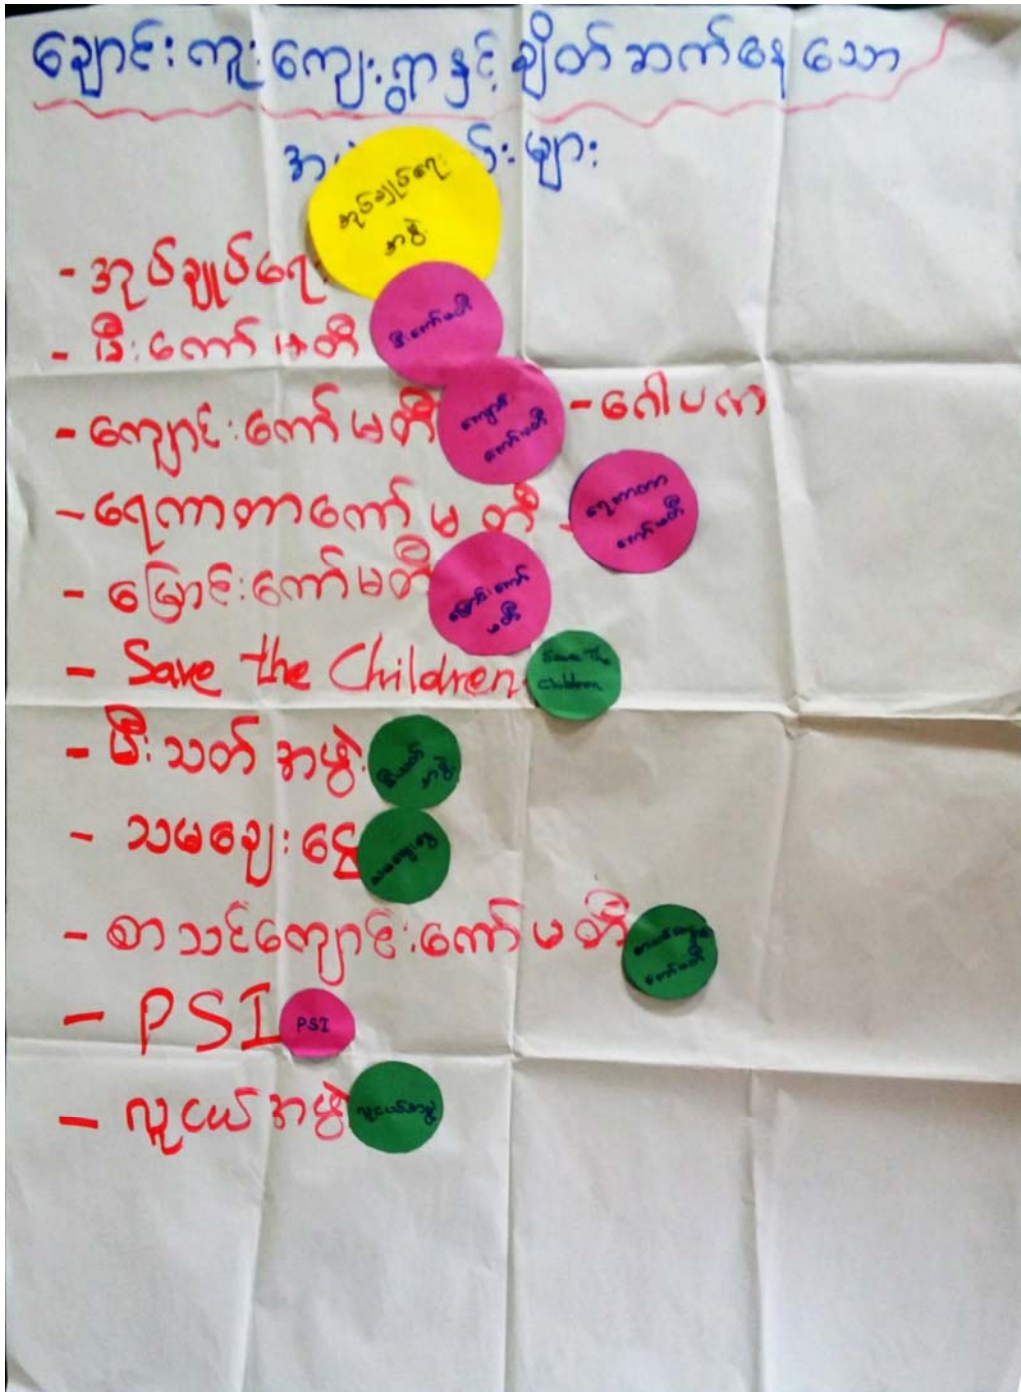 ချောင်းကူးကျေးရွာနှင့် ချိတ်ဆက်နေသော
များ
အုပ်ချုပ်ရေး
အဖွဲ့
- အုပ်ချုပ်ရေး
မီးကော်မတီ
- မီးကော်မတီ
- ကျောင်းကော်မတီ
ကျောင်း
ကော်မတီ
- ဂေါပက
- ရေကာတာကော်မတီ
ရေကာတာ
ကော်မတီ
- မြောင်းကော်မတီ
မြောင်းကော်
မတီ
- Save the Children
Save The
Children
- မီးသတ်အဖွဲ့
မီးသတ်
အဖွဲ့
- သမချေးငွေ
သမချေးငွေ
- စာသင်ကျောင်းကော်မတီ
စာသင်ကျောင်း
ကော်မတီ
- PSI
PSI
- လူငယ်အဖွဲ့
လူငယ်အဖွဲ့